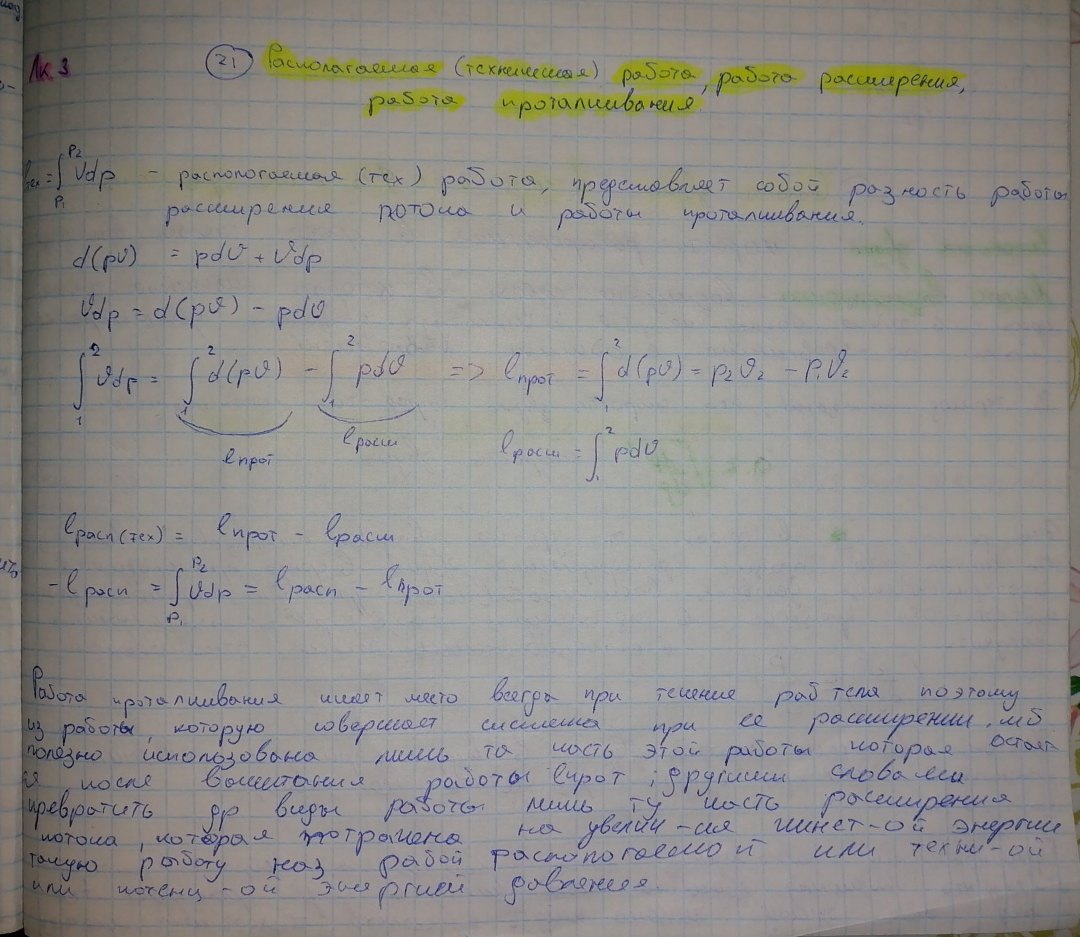 Лк 3
21 Располагаемая (техническая) работа, работа расширения,
работа проталкивания.
lтех = ∫ p₁ p₂ Vdp – располагаемая (тех) работа, представляет собой разность работы
расширения потока и работы проталкивания.
d(pv) = pdv + vdp
vdp = d(pv) – pdv
∫₁² vdp = ∫₁² d(pv) – ∫₁² pdv => lпрот = ∫₁² d(pv) = p₂v₂ – p₁v₂
lпрот lрасш lрасш = ∫₁² pdv
lрасп(тех) = lпрот – lрасш
–lрасп = ∫ p₁ p₂ vdp = lрасп – lпрот
Работа проталкивания имеет место всегда при течение раб тела поэтому
из работы, которую совершает система при ее расширении, мб
полезно использована лишь та часть этой работы которая остает
я после вычитания работы lпрот ; другими словами
превратить др виды работы лишь ту часть расширения
потока, которая потрачена на увелич-ия кинет-ой энергии
такую работу наз рабой располагаемой или техни-ой
или потенц-ой энергией давления.